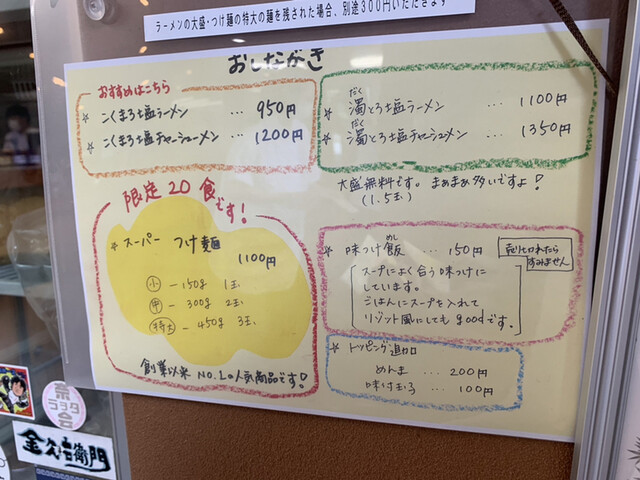 ラーメンの大盛・つけ麺の特大の麺を残された場合、別途300円いただきます
おしながき
おすすめはこちら
☆ こくまろ塩ラーメン … 950円
☆ こくまろ塩チャーシューメン … 1200円
だく
☆ 濁とろ塩ラーメン … 1100円
だく
☆ 濁とろ塩チャーシューメン … 1350円
大盛無料です。まぁまぁ多いですよ!
(1.5玉)
限定20食です!
☆ スーパー つけ麺
1100円
小 - 150g 1玉
中 - 300g 2玉
特大 - 450g 3玉
創業以来 No.1の人気商品です!
めし
☆ 味つけ飯 … 150円
売り切れたら
すみません
スープによく合う味つけに
しています。
ごはんにスープを入れて
リゾット風にしても goodです。
☆ トッピング追加
めんま … 200円
味付玉子 … 100円
奈
ラヲタ
会
金久右衛門